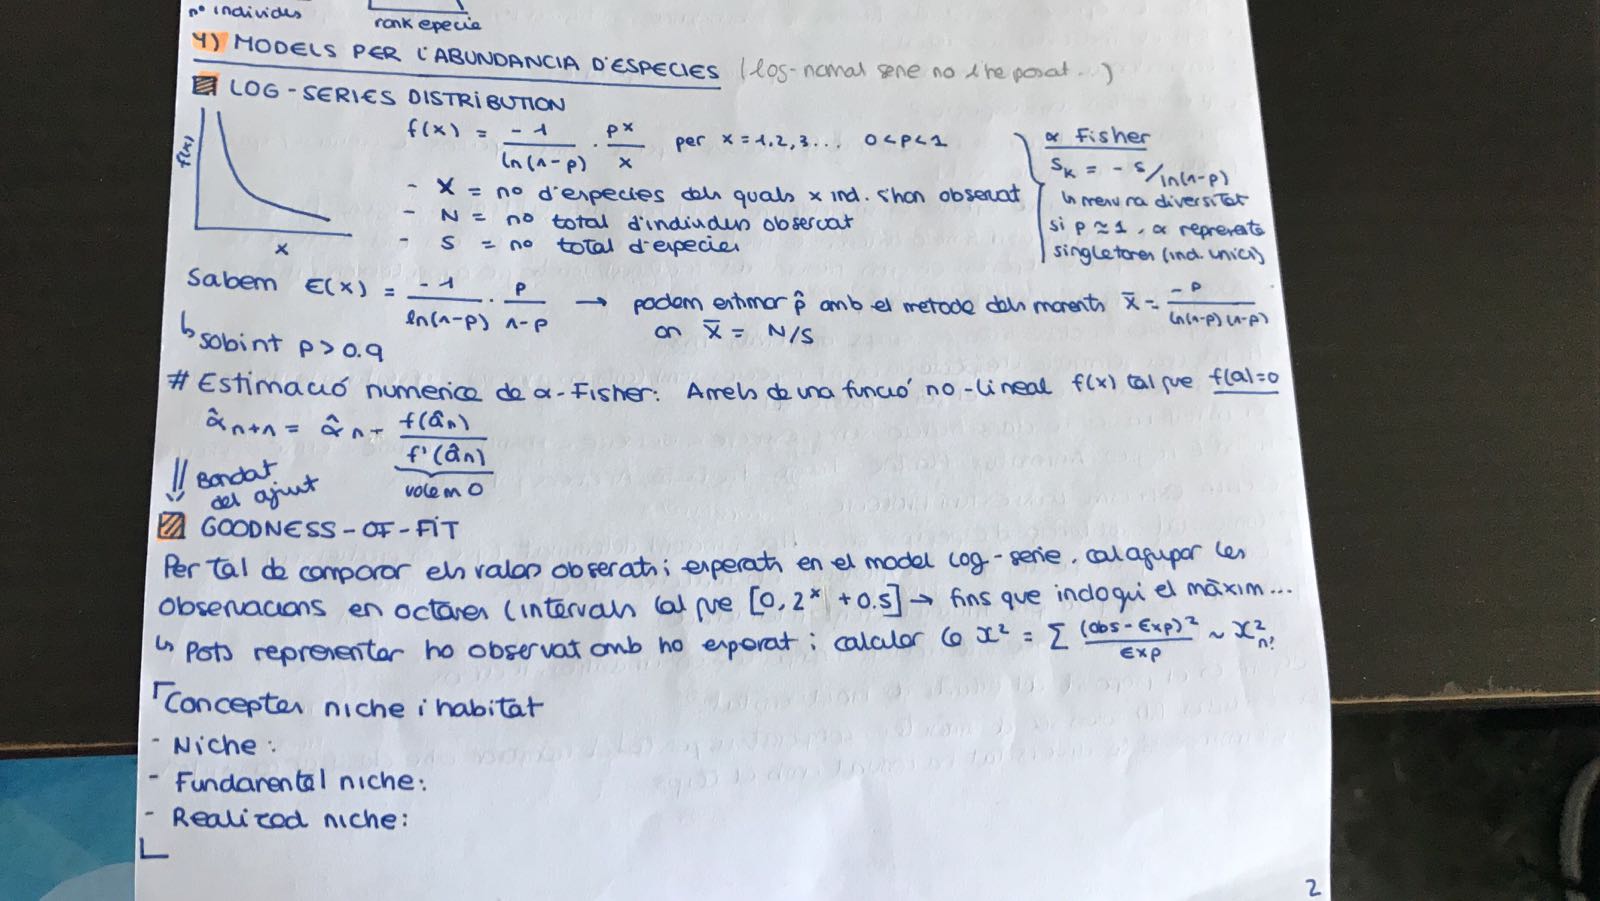 nº individus
rank especie
4) MODELS PER L'ABUNDANCIA D'ESPECIES (log-nomal serie no l'he posat...)
LOG-SERIES DISTRIBUTION
f(x)
x
f(x) = -1/ln(1-p) · p^x/x per x=1,2,3... 0<p<1
- X = nº d'especies dels quals x ind. s'han observat
- N = nº total d'individus observat
- S = nº total d'especies
α Fisher
Sk = -S/ln(1-p)
↳ mesura diversitat
si p≈1, α representa
singletones (ind. unics)
Sabem E(x) = -1/ln(1-p) · p/1-p → podem estimar p̂ amb el metode dels moments x̄ = -p/ln(1-p)(1-p)
on x̄ = N/S
↳ sobint p>0.9
# Estimació numerica de α-Fisher: Arrels de una funció no-lineal f(x) tal que f(a)=0
α̂n+1 = α̂n - f(α̂n)/f'(α̂n)
volem 0
Bondat
del ajust
GOODNESS-OF-FIT
Per tal de comparar els valors observats i esperats en el model log-serie. cal agupar les
observacions en octaves (intervals tal que [0, 2^x + 0.5] → fins que inclogui el màxim...
↳ Pots representar ho observat amb ho esperat i calcular la X² = Σ (obs-Exp)²/Exp ~ X²n?
Conceptes niche i habitat
- Niche:
- Fundamental niche:
- Realized niche:
2